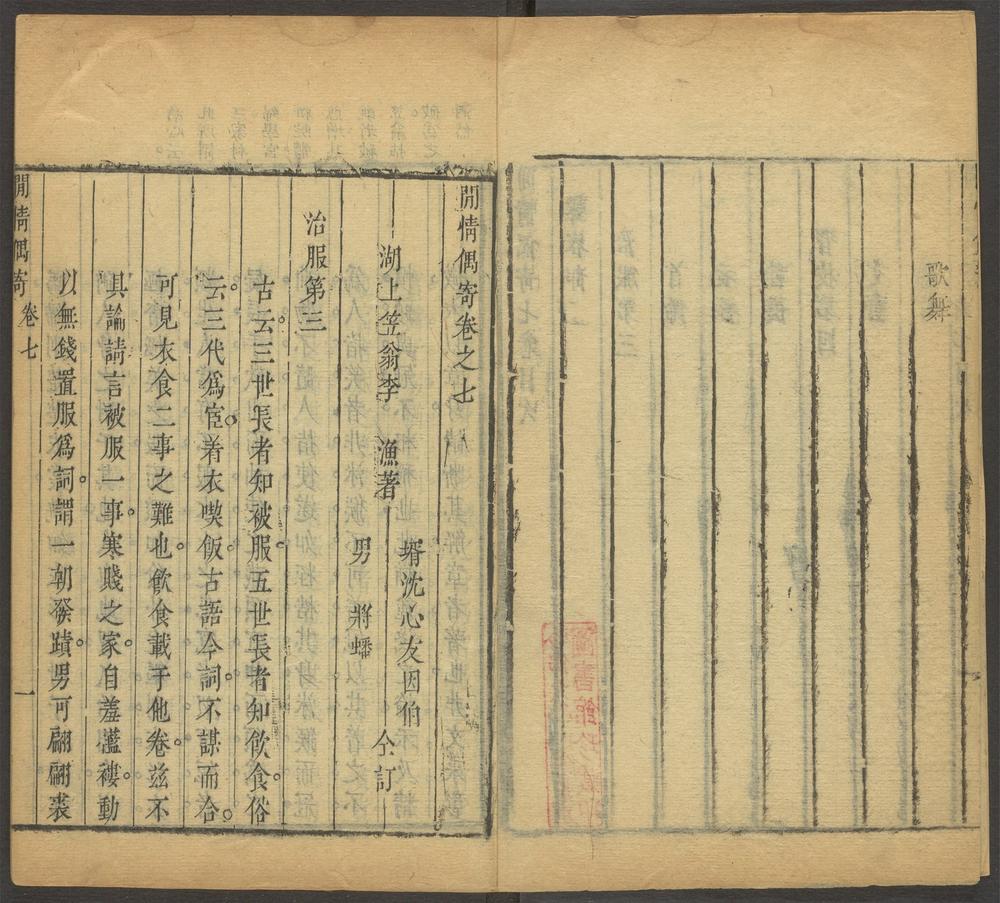 歌舞
閒情偶寄卷之七
湖上笠翁李漁著
壻沈心友因伯
男將蟠
仝訂
治服第三
古云。三世長者知被服。五世長者知飲食。俗
云。三代爲宦。着衣喫飯。古語今詞。不謀而合。
可見衣食二事之難也。飲食載于他卷。茲不
具論。請言被服一事。寒賤之家。自羞襤褸。動
以無錢置服爲詞。謂一朝發蹟。男可翩翩裘
閒情偶寄 卷七 一